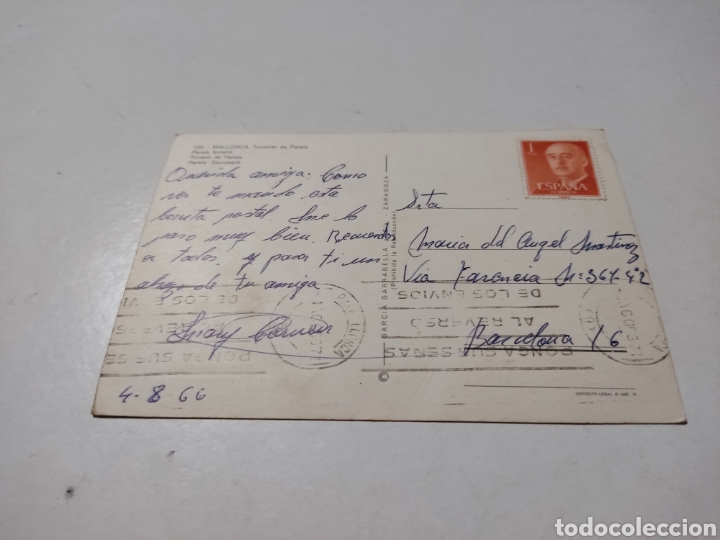 MALLORCA. Torrente de Pareis
Pareis torrent
Torrent de Pareis
Querida amiga: Como
ves te mando esta
bonita postal. Me lo
paso muy bien. Recuerdos
a todos, y para ti un
abrazo de tu amiga
Mary Carmen
4-8-66
1
ESPAÑA
Srta
Maria del Angel Martinez
Barcelona
GARCIA GARRABELLA
ZARAGOZA
(Prohibida la Reproducción)
PONGA SUS SEÑAS
AL REVERSO
DE LOS ENVIOS
DEPOSITO LEGAL
todocoleccion